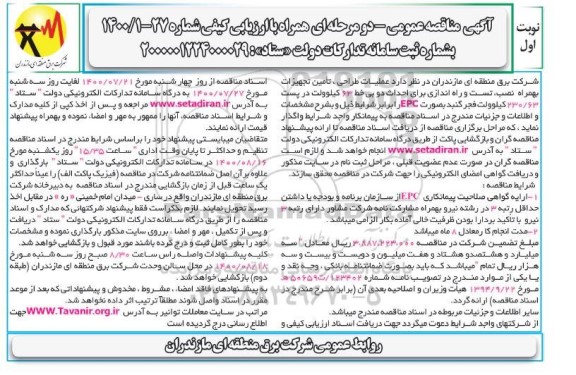 نوبت
اول
آگهی مناقصه عمومی - دو مرحله ای همراه با ارزیابی کیفی شماره ۲۷-۱۴۰۰/۱
بشماره ثبت سامانه تدارکات دولت «ستاد»: ۲۰۰۰۰۰۱۲۲۴۰۰۰۰۲۹
شرکت برق منطقه ای مازندران
شرکت برق منطقه ای مازندران در نظر دارد عملیات طراحی، تأمین تجهیزات
بهمراه نصب، تست و راه اندازی برای احداث دو بی خط ۶۳ کیلوولت در پست
۲۳۰/۶۳ کیلوولت فجر گنبد بصورت EPC را برابر شرایط ذیل و بشرح مشخصات
و اطلاعات و جزئیات مندرج در اسناد مناقصه به پیمانکار واجد شرایط واگذار
نماید. کلیه مراحل برگزاری مناقصه از دریافت اسناد مناقصه تا ارائه پیشنهاد
مناقصه گران و بازگشایی پاکت از طریق درگاه سامانه تدارکات الکترونیکی دولت
" ستاد " به آدرس www.setadiran.ir انجام خواهد شد و لازم است
مناقصه گران در صورت عدم عضویت قبلی، مراحل ثبت نام در سایت مذکور
و دریافت گواهی امضای الکترونیکی را جهت شرکت در مناقصه محقق سازند.
شرایط مناقصه :
۱- ارایه گواهی صلاحیت پیمانکاری EPC از سازمان برنامه و بودجه با داشتن
حداقل رتبه ۳ در رشته نیرو بهمراه مشارکت نامه شرکت مشاور دارای رتبه ۳
نیرو با تکیه بر دارا بودن ظرفیت خالی آماده بکار الزامی میباشد.
۲- مدت انجام کار معادل ۸ ماه میباشد
مبلغ تضمین شرکت در مناقصه ۳.۸۸۷.۲۲۳.۰۰۰ ریال معادل " سه
میلیارد و هشتصد و هشتاد و هفت میلیون و دویست و بیست و سه
هزار ریال تمام " میباشد که باید بصورت ضمانتنامه بانکی، وجه نقد و
یا یکی از موارد مندرج در تصویب نامه شماره ۱۲۳۴۰۲/ت۵۰۶۵۹هـ
مورخ ۱۳۹۴/۹/۲۲ هیأت وزیران و اصلاحیه بعدی آن (برابر شرح مندرج در
اسناد مناقصه) ارائه گردد.
سایر اطلاعات و جزئیات مربوطه در اسناد مناقصه مندرج میباشد.
از شرکتهای واجد شرایط دعوت میگردد جهت دریافت اسناد ارزیابی کیفی و
اسناد مناقصه از روز چهار شنبه مورخ ۱۴۰۰/۰۷/۲۱ لغایت روز سه شنبه
مورخ ۱۴۰۰/۰۷/۲۷ به درگاه سامانه تدارکات الکترونیکی دولت " ستاد "
به آدرس www.setadiran.ir مراجعه و پس از اخذ کپی از کلیه مدارک
و شرایط اسناد مناقصه، آنها را ممهور به مهر و امضاء نموده و بهمراه پیشنهاد
قیمت ارائه نمایند.
متقاضیان میبایستی پیشنهاد خود را براساس شرایط مندرج در اسناد مناقصه
تنظیم و حداکثر تا پایان وقت اداری " ساعت ۱۵/۳۵ روز یکشنبه مورخ
۱۴۰۰/۰۸/۱۶ در سامانه تدارکات الکترونیکی دولت "ستاد" بارگذاری و
علاوه بر آن اصل ضمانتنامه شرکت در مناقصه (فیزیک پاکت الف) را عیناً حداکثر
یک ساعت قبل از زمان بازگشایی مندرج در اسناد مناقصه به دبیرخانه شرکت
برق منطقه ای مازندران واقع در ساری - میدان امام خمینی «ره» در مقابل اخذ
رسید تحویل نمایند. لازم بذکر است فقط پیشنهاد شرکتهائی که مدارک و اسناد
مناقصه را از طریق درگاه سامانه تدارکات الکترونیکی دولت " ستاد " دریافت
و پس از تکمیل، مهر و امضاء برروی سایت مذکور بارگذاری نموده و مشخصات
خود را بطور کامل ثبت و درج کرده باشند مورد قبول و بازگشایی خواهد شد.
کلیه پیشنهادات واصله راس ساعت ۸/۳۰ صبح روز سه شنبه مورخ
۱۴۰۰/۰۸/۱۸ در محل سالن وحدت شرکت برق منطقه ای مازندران (طبقه
دوم) بازگشایی خواهد شد.
به پیشنهادهای فاقد امضاء، مشروط، مخدوش و پیشنهاداتی که بعد از موعد
مقرر در اسناد واصل شوند مطلقاً ترتیب اثر داده نخواهد شد.
مراتب در سایت معاملات توانیر به آدرس www.Tavanir.org.ir جهت
اطلاع رسانی درج گردیده است
روابط عمومی شرکت برق منطقه ای مازندران